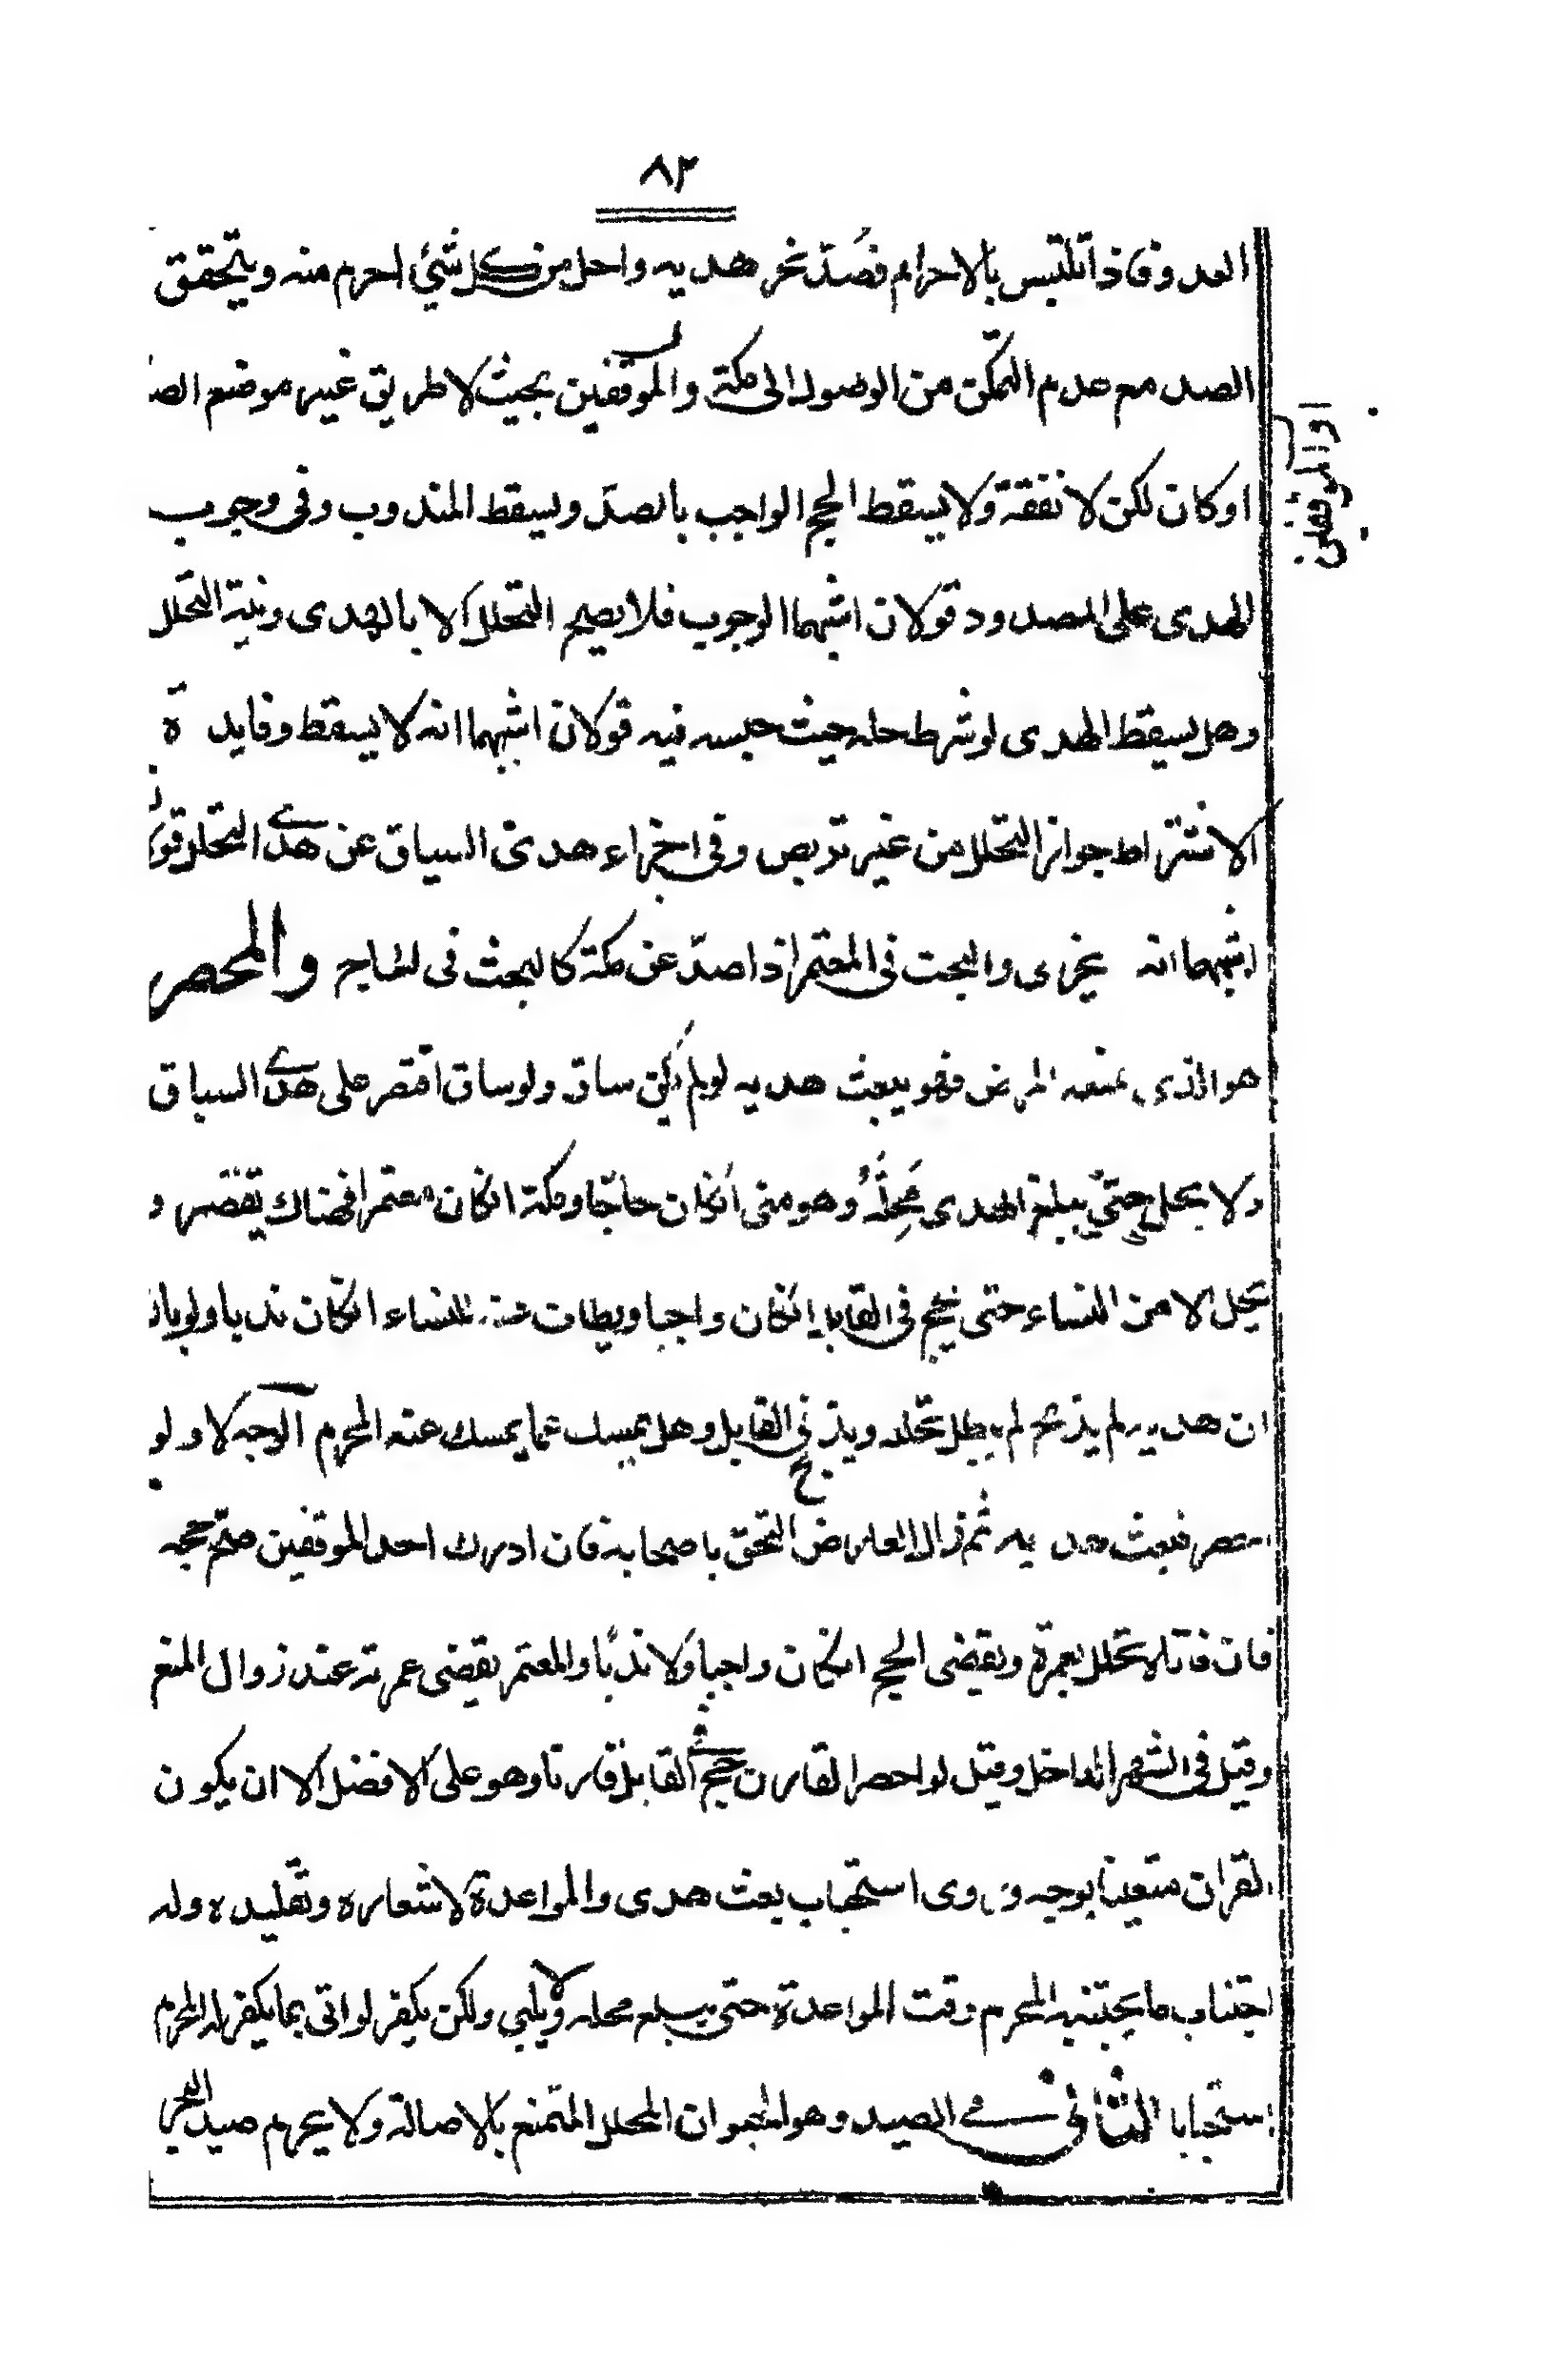 ٨٢
العدو فاذا تلبس بالاحرام فصُدّ نحر هديه واحل من كل شئ احرم منه ويتحقق
الصد مع عدم التمكن من الوصول الى مكة والموقفين بحيث لا طريق غير موضع الصد
او الموقفين
او كان لكن لا نفقة ولا يسقط الحج الواجب بالصدّ ويسقط المندوب وفى وجوب
الهدى على المصدود قولان اشبهما الوجوب فلا يصح التحلل الا بالهدى ونية التحلل
وهل يسقط الهدى لو شرط حله حيث حبسه فيه قولان اشبهما انه لا يسقط وفايدة
الاشتراط جواز التحلل من غير تربص وفى اجزاء هدى السياق عن هدى التحلل قولان
اشبهما انه يجزى والبحث فى المعتمر اذا صدّ عن مكة كالبحث فى الحاج والمحصر
هو الذى يمنعه المرض فهو يبعث هديه لو لم يكن ساق ولو ساق اقتصر على هدى السياق
ولا يحل حتى يبلغ الهدى مَحِلَّهُ وهو منى انكان حاجّا ومكة انكان معتمرا فهناك يقصر و
يحل الا من النساء حتى يحج فى القابل انكان واجبا ويطاف عنه للنساء انكان ندبا ولو بان
ان هديه لم يذبح لم يبطل تحلله ويذبح فى القابل وهل يمسك عما يمسك عنه المحرم الوجه لا ولو
احصر فبعث هديه ثم زال العارض التحق باصحابه فان ادرك احد الموقفين صحّ حجه
فان فاتاه تحلل بعمرة ويقضى الحج انكان واجباً ولا ندبًا والمعتمر يقضى عمرته عند زوال المنع
وقيل فى الشهر الداخل وقيل لو احصر القارن حج فى القابل قارنا وهو على الافضل الا ان يكون
القران متعينا بوجه وروى استحباب بعث هدى والمواعدة لاشعاره وتقليده وله
اجتناب ما يجتنبه المحرم وقت المواعدة حتى يبلغ محله ولا يلبى ولكن يكفر لو اتى بما يكفر له المحرم
استحبابا الثانى فى الصيد وهو الحيوان المحلل الممتنع بالاصالة ولا يحرم صيد البحر